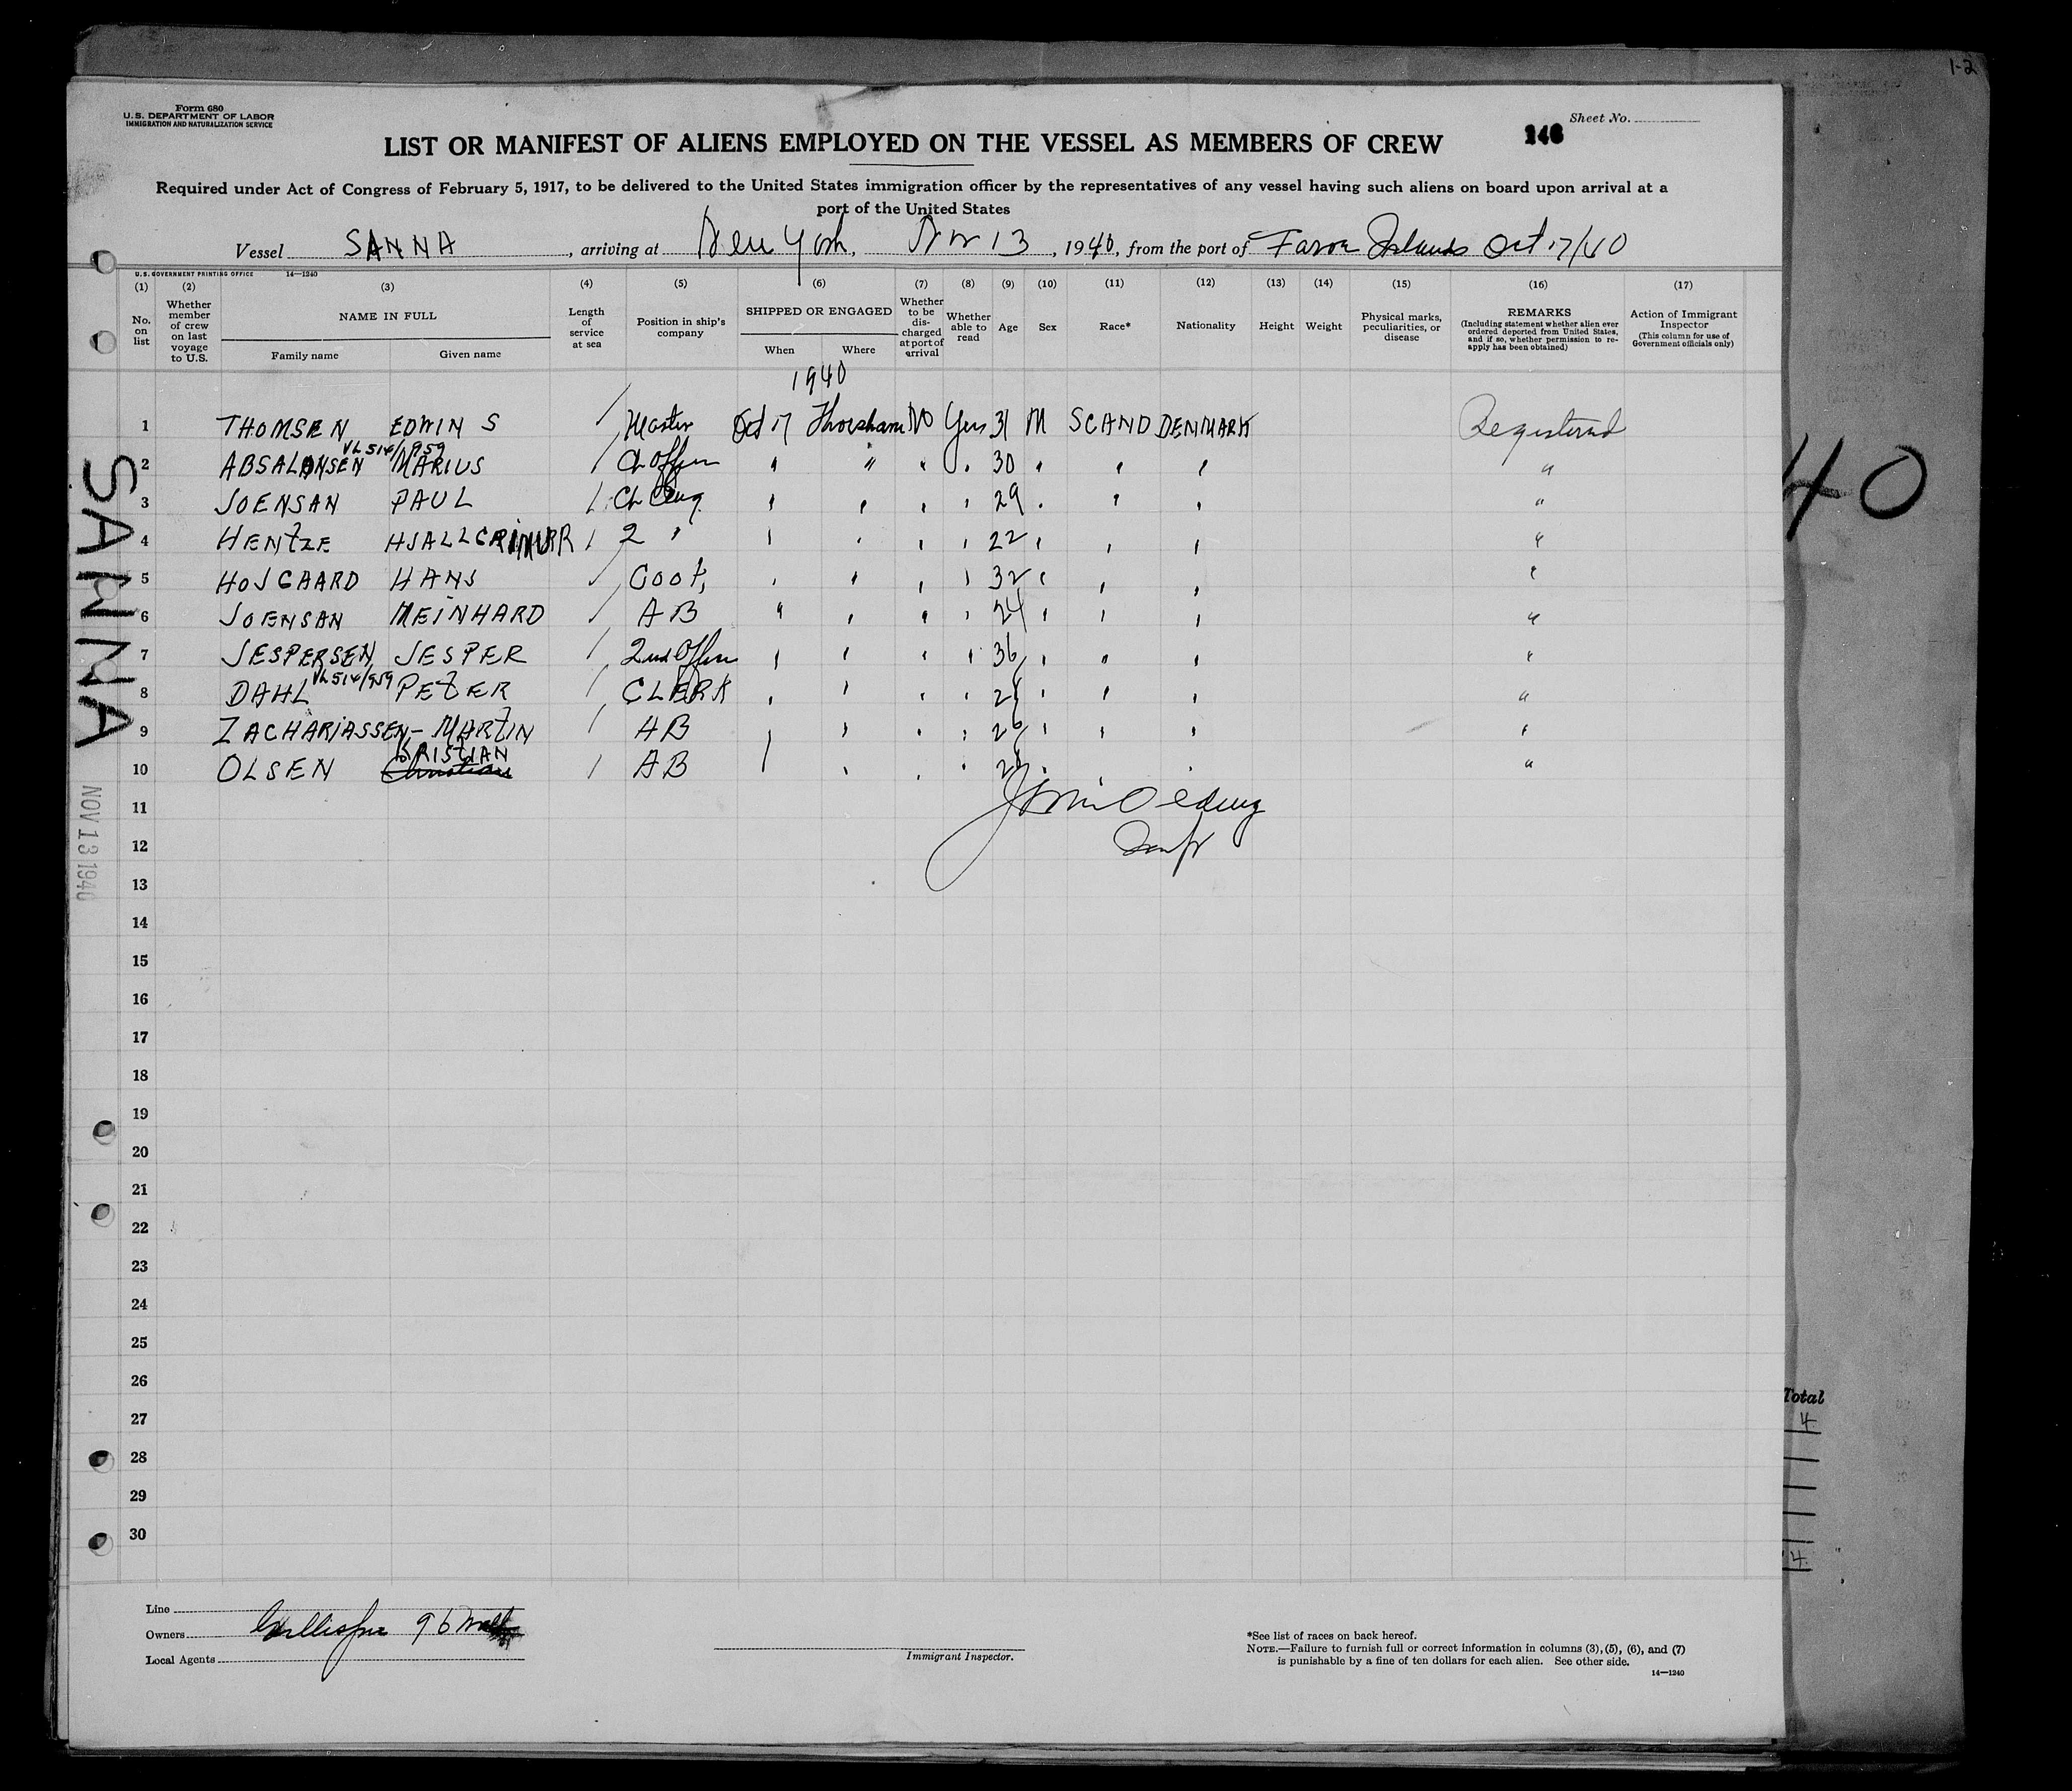 1-2
Form 680
U.S. DEPARTMENT OF LABOR
IMMIGRATION AND NATURALIZATION SERVICE
Sheet No.
LIST OR MANIFEST OF ALIENS EMPLOYED ON THE VESSEL AS MEMBERS OF CREW
Required under Act of Congress of February 5, 1917, to be delivered to the United States immigration officer by the representatives of any vessel having such aliens on board upon arrival at a
port of the United States
Vessel SANNA, arriving at New York, Nov 13, 1940, from the port of Faroe Islands Oct 17/40
U.S. GOVERNMENT PRINTING OFFICE 14—1240
(1) (2) (3) (4) (5) (6) (7) (8) (9) (10) (11) (12) (13) (14) (15) (16) (17)
No. on list
Whether member of crew on last voyage to U.S.
NAME IN FULL
Family name Given name
Length of service at sea
Position in ship's company
SHIPPED OR ENGAGED
When Where
Whether to be discharged at port of arrival
Whether able to read
Age Sex Race* Nationality Height Weight
Physical marks, peculiarities, or disease
REMARKS
(Including statement whether alien ever ordered deported from United States, and if so, whether permission to reapply has been obtained)
Action of Immigrant Inspector
(This column for use of Government officials only)
1940
1 THOMSEN EDWIN S / Master Oct 17 Thorshavn No Yes 31 M SCAND DENMARK Registered
VL 514/959
2 ABSALONSEN MARIUS / Ch Officer " " " " 30 " " " "
3 JOENSAN PAUL / Ch Eng. " " " " 29 " " " "
4 HENTZE HJALLGRIMUR / 2 " " " " " 22 " " " "
5 HOJGAARD HANS / Cook " " " " 32 " " " "
6 JOENSAN MEINHARD / AB " " " " 24 " " " "
7 JESPERSEN JESPER / 2nd Officer " " " " 36 " " " "
VL 514/959
8 DAHL PETER / CLERK " " " " " " " "
9 ZACHARIASSEN - MARTIN / AB " " " " 26 " " " "
KRISTIAN
10 OLSEN Christian / AB " " " " " " " "
11
12
13
14
15
16
17
18
19
20
21
22
23
24
25
26
27
28
29
30
SANNA
NOV 13 1940
40
Total
4
4
Line
Owners 96 Wall
Local Agents
Immigrant Inspector.
*See list of races on back hereof.
NOTE.—Failure to furnish full or correct information in columns (3), (5), (6), and (7)
is punishable by a fine of ten dollars for each alien. See other side.
14—1240